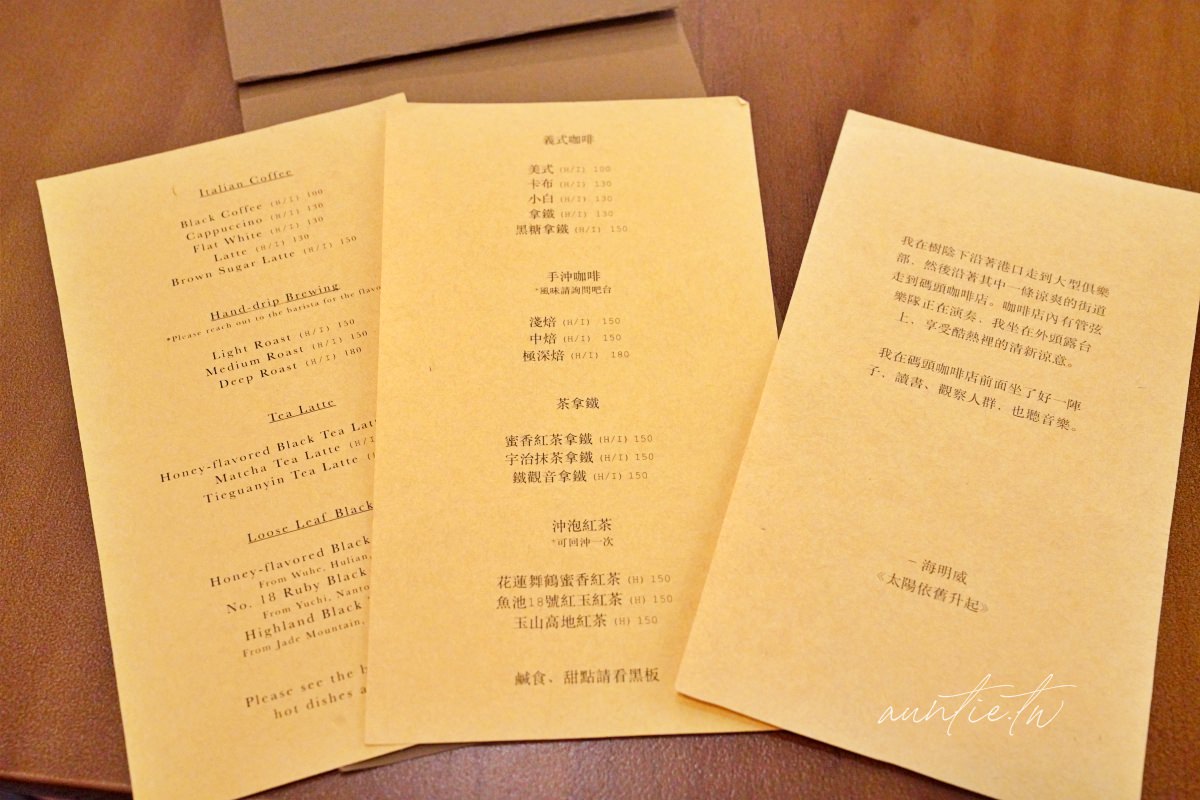 Italian Coffee
Black Coffee (H/I) 100
Cappuccino (H/I) 130
Flat White (H/I) 130
Latte (H/I) 130
Brown Sugar Latte (H/I) 150
Hand-drip Brewing
*Please reach out to the barista for the
Light Roast (H/I) 150
Medium Roast (H/I) 150
Deep Roast (H/I) 180
Tea Latte
Honey-flavored Black Tea
Matcha Tea Latte
Tieguanyin Tea Latte
Loose Leaf Black
Honey-flavored Black
From Wuhe, Hulian,
No. 18 Ruby Black
From Yuchi,
Highland Black
From Jade Mountain,
Please see the
hot dishes
義式咖啡
美式 (H/I) 100
卡布 (H/I) 130
小白 (H/I) 130
拿鐵 (H/I) 130
黑糖拿鐵 (H/I) 150
手沖咖啡
*風味請詢問吧台
淺焙 (H/I) 150
中焙 (H/I) 150
極深焙 (H/I) 180
茶拿鐵
蜜香紅茶拿鐵 (H/I) 150
宇治抹茶拿鐵 (H/I) 150
鐵觀音拿鐵 (H/I) 150
沖泡紅茶
*可回沖一次
花蓮舞鶴蜜香紅茶 (H) 150
魚池18號紅玉紅茶 (H) 150
玉山高地紅茶 (H) 150
鹹食、甜點請看黑板
我在樹陰下沿著港口走到大型俱樂
部，然後沿著其中一條涼爽的街道
走到碼頭咖啡店。咖啡店內有管弦
樂隊正在演奏，我坐在外頭露台
上，享受酷熱裡的清新涼意。
我在碼頭咖啡店前面坐了好一陣
子，讀書、觀察人群，也聽音樂。
– 海明威
《太陽依舊升起》
auntie.tw